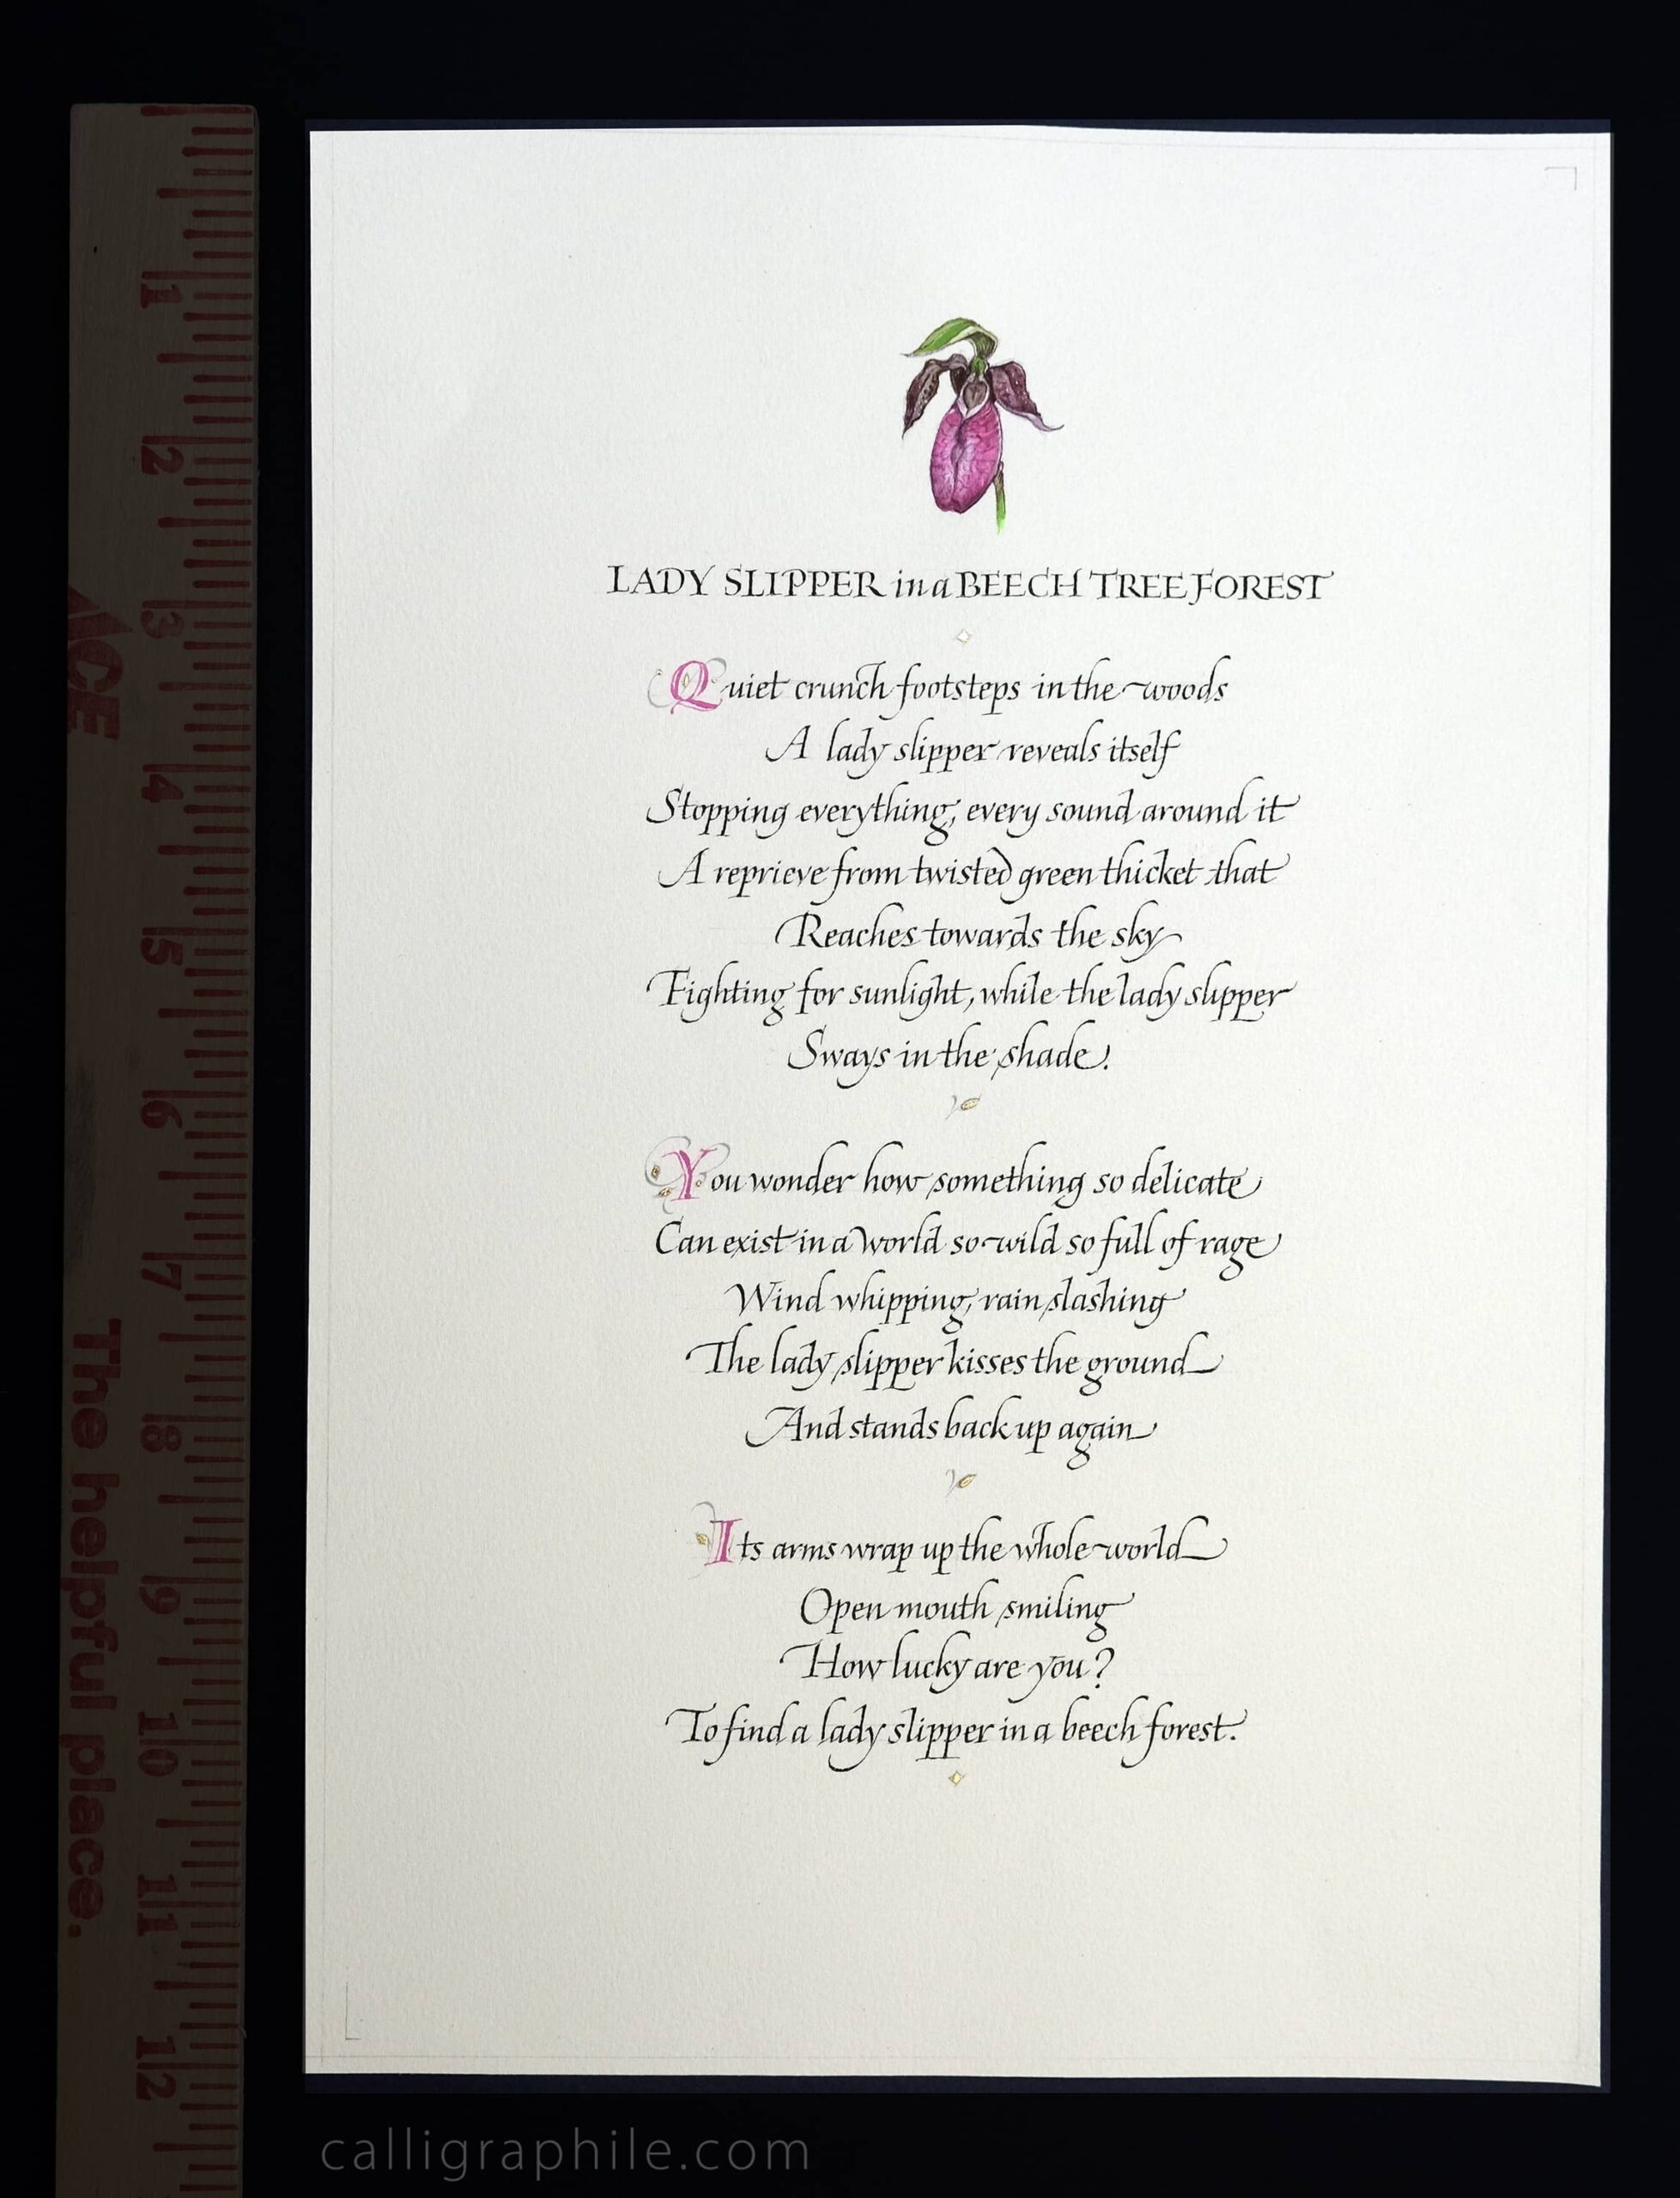 LADY SLIPPER in a BEECH TREE FOREST
Quiet crunch footsteps in the woods
A lady slipper reveals itself
Stopping everything, every sound around it
A reprieve from twisted green thicket that
Reaches towards the sky
Fighting for sunlight, while the lady slipper
Sways in the shade.
You wonder how something so delicate
Can exist in a world so wild so full of rage
Wind whipping, rain slashing
The lady slipper kisses the ground
And stands back up again
Its arms wrap up the whole world
Open mouth smiling
How lucky are you?
To find a lady slipper in a beech forest.
1
2
3
4
5
6
7
8
9
10
11
12
ACE
The helpful place.
calligraphile.com